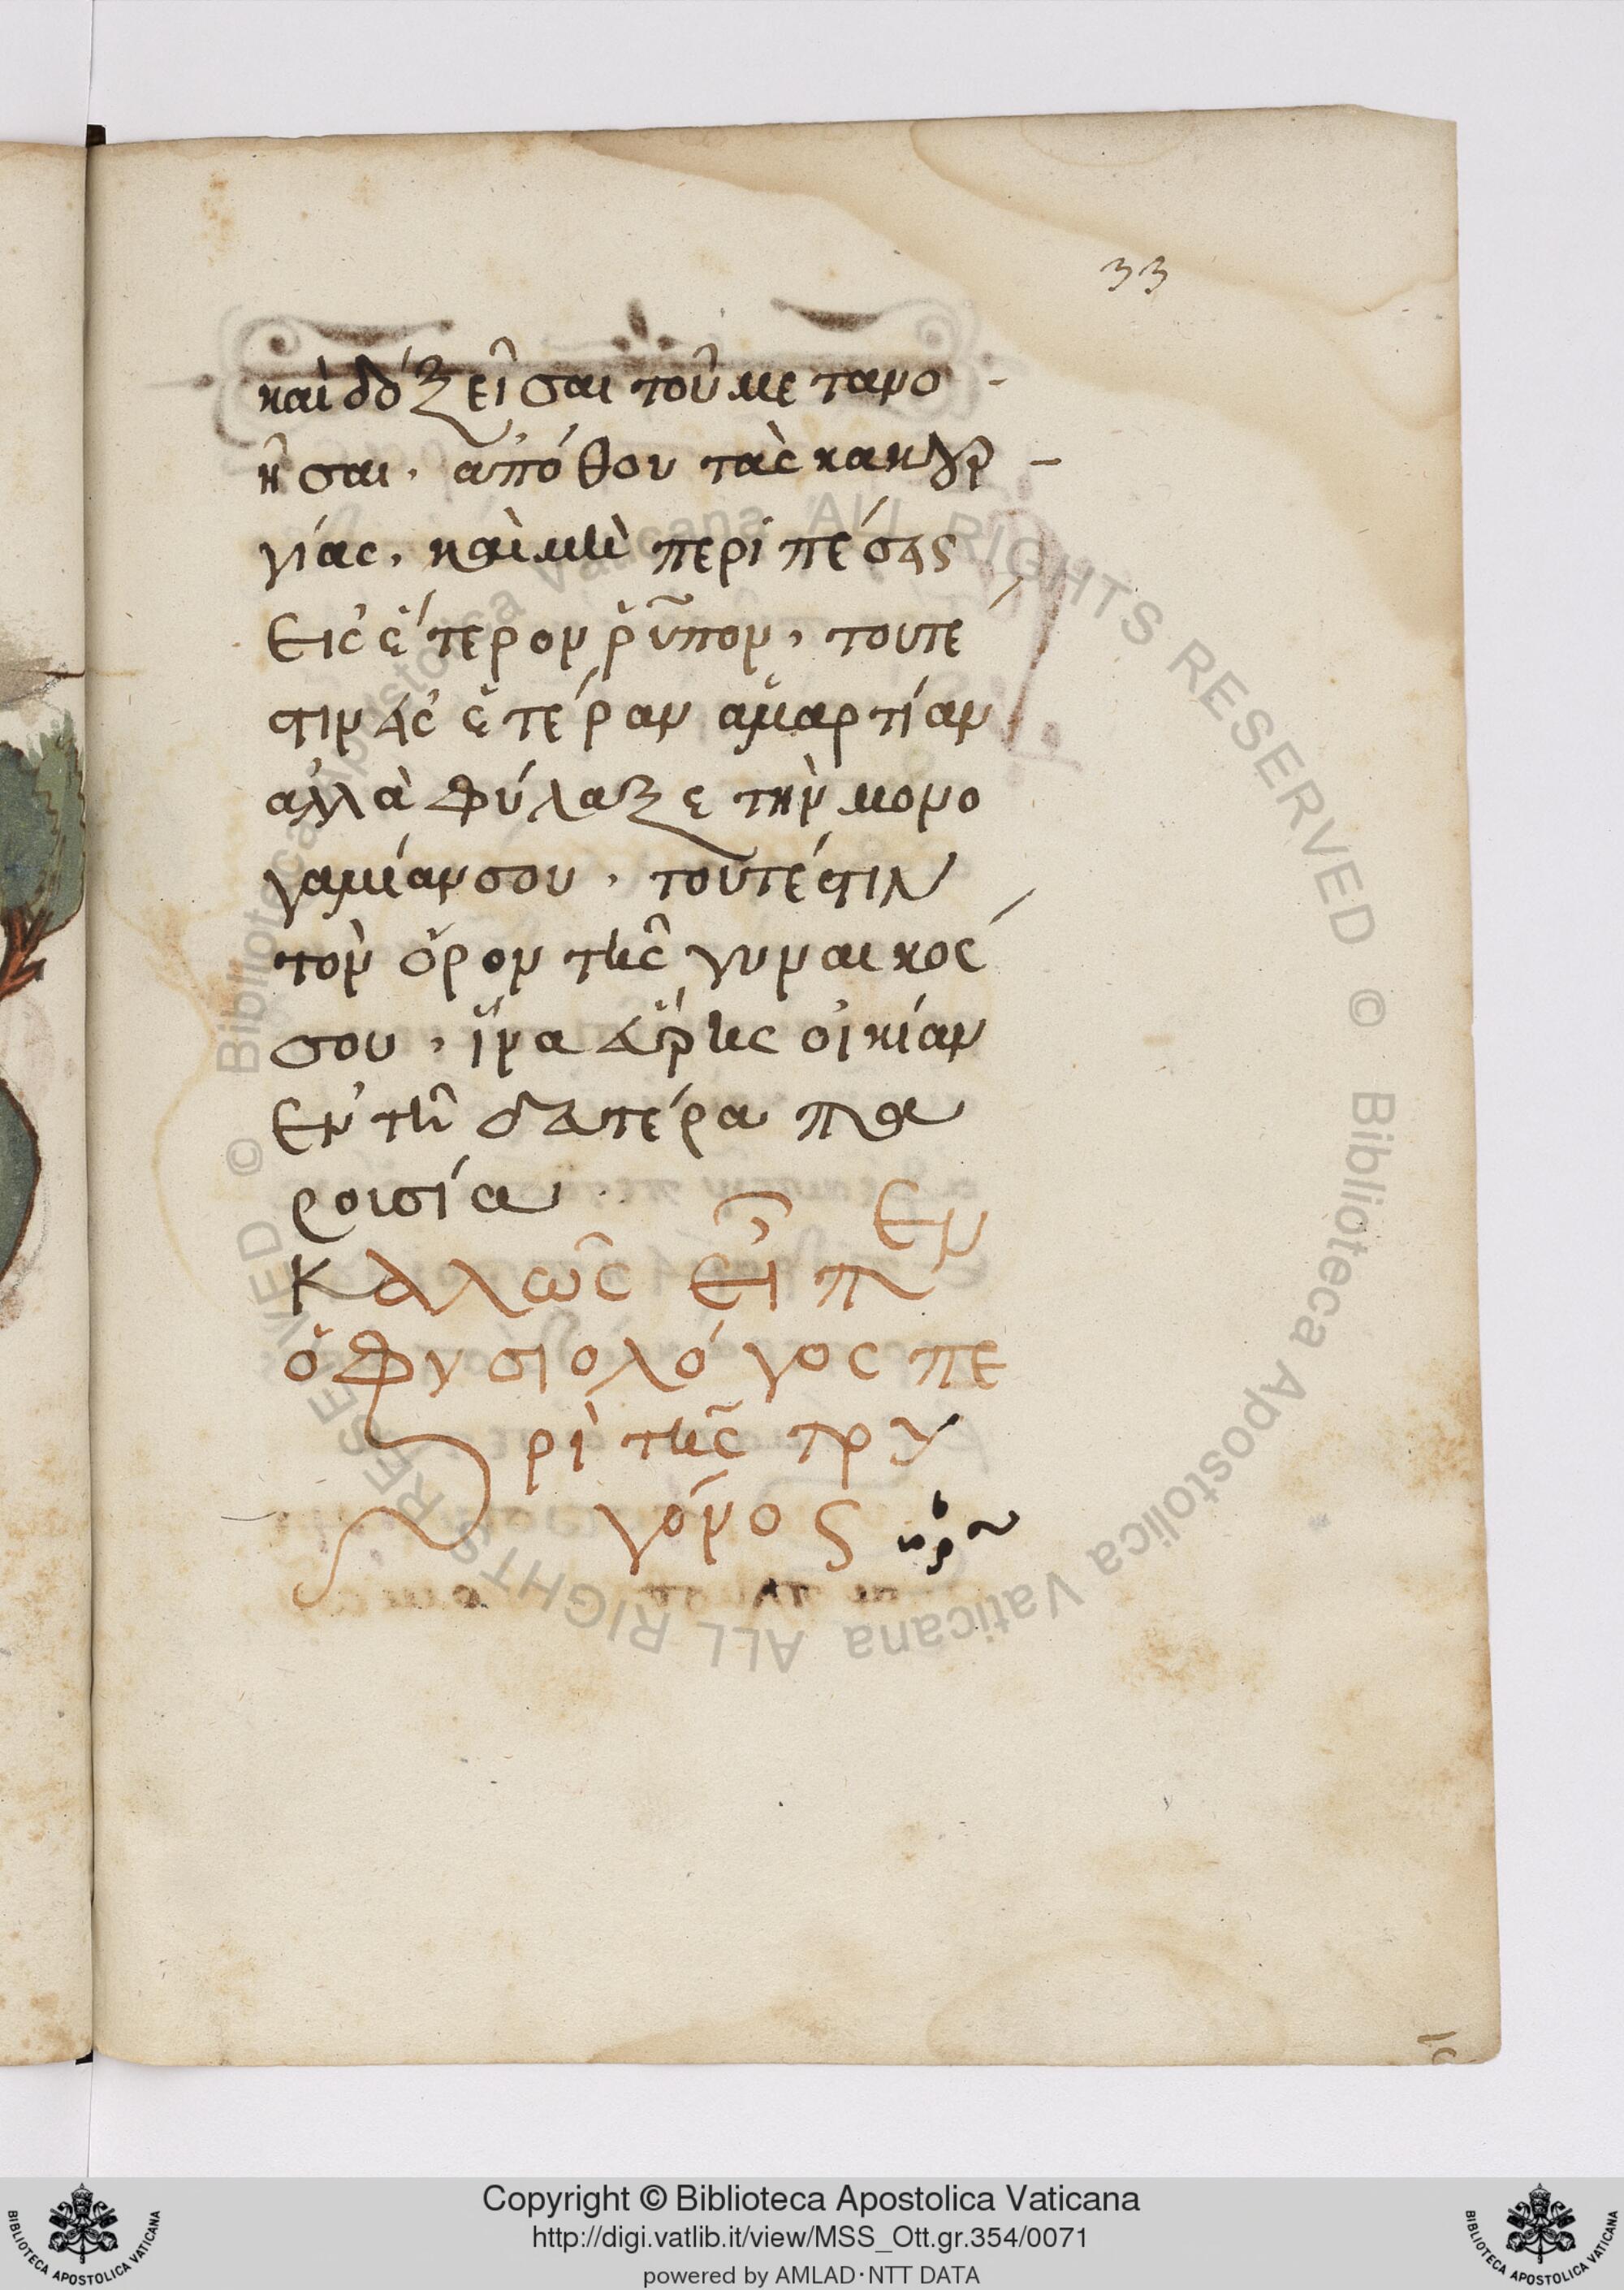 33
καὶ δόξει σαι τοῦ μετανο -
ῆσαι. ἀπόθου τὰς κακουρ -
γίας. καὶ μὴ περιπέσεις
εἰς ἕτερον ῥῦπον, τουτέ
στιν εἰς ἑτέραν ἁμαρτίαν
ἀλλὰ φύλαξε τὴν μονο
γαμίαν σου. τουτέστιν
τὸν ὅρον τῆς γυναικός
σου, ἵνα εὕρῃς οἰκίαν
ἐν τῇ δευτέρα πα
ρουσία.
Καλῶς εἶπεν
ὁ Φυσιολόγος πε
ρὶ τῆς τρυ
γόνος
Copyright © Biblioteca Apostolica Vaticana
http://digi.vatlib.it/view/MSS_Ott.gr.354/0071
powered by AMLAD·NTT DATA
BIBLIOTECA APOSTOLICA VATICANA
BIBLIOTECA APOSTOLICA VATICANA
© Biblioteca Apostolica Vaticana ALL RIGHTS RESERVED © Biblioteca Apostolica Vaticana ALL RIGHTS RESERVED